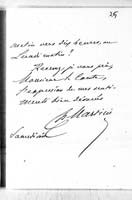 matin vers dix heures, ou
Lundi matin?
Recevez, je vous prie,
Monsieur le Comte,
l'expression de mes senti-
ments bien dévoués
Samedi soir